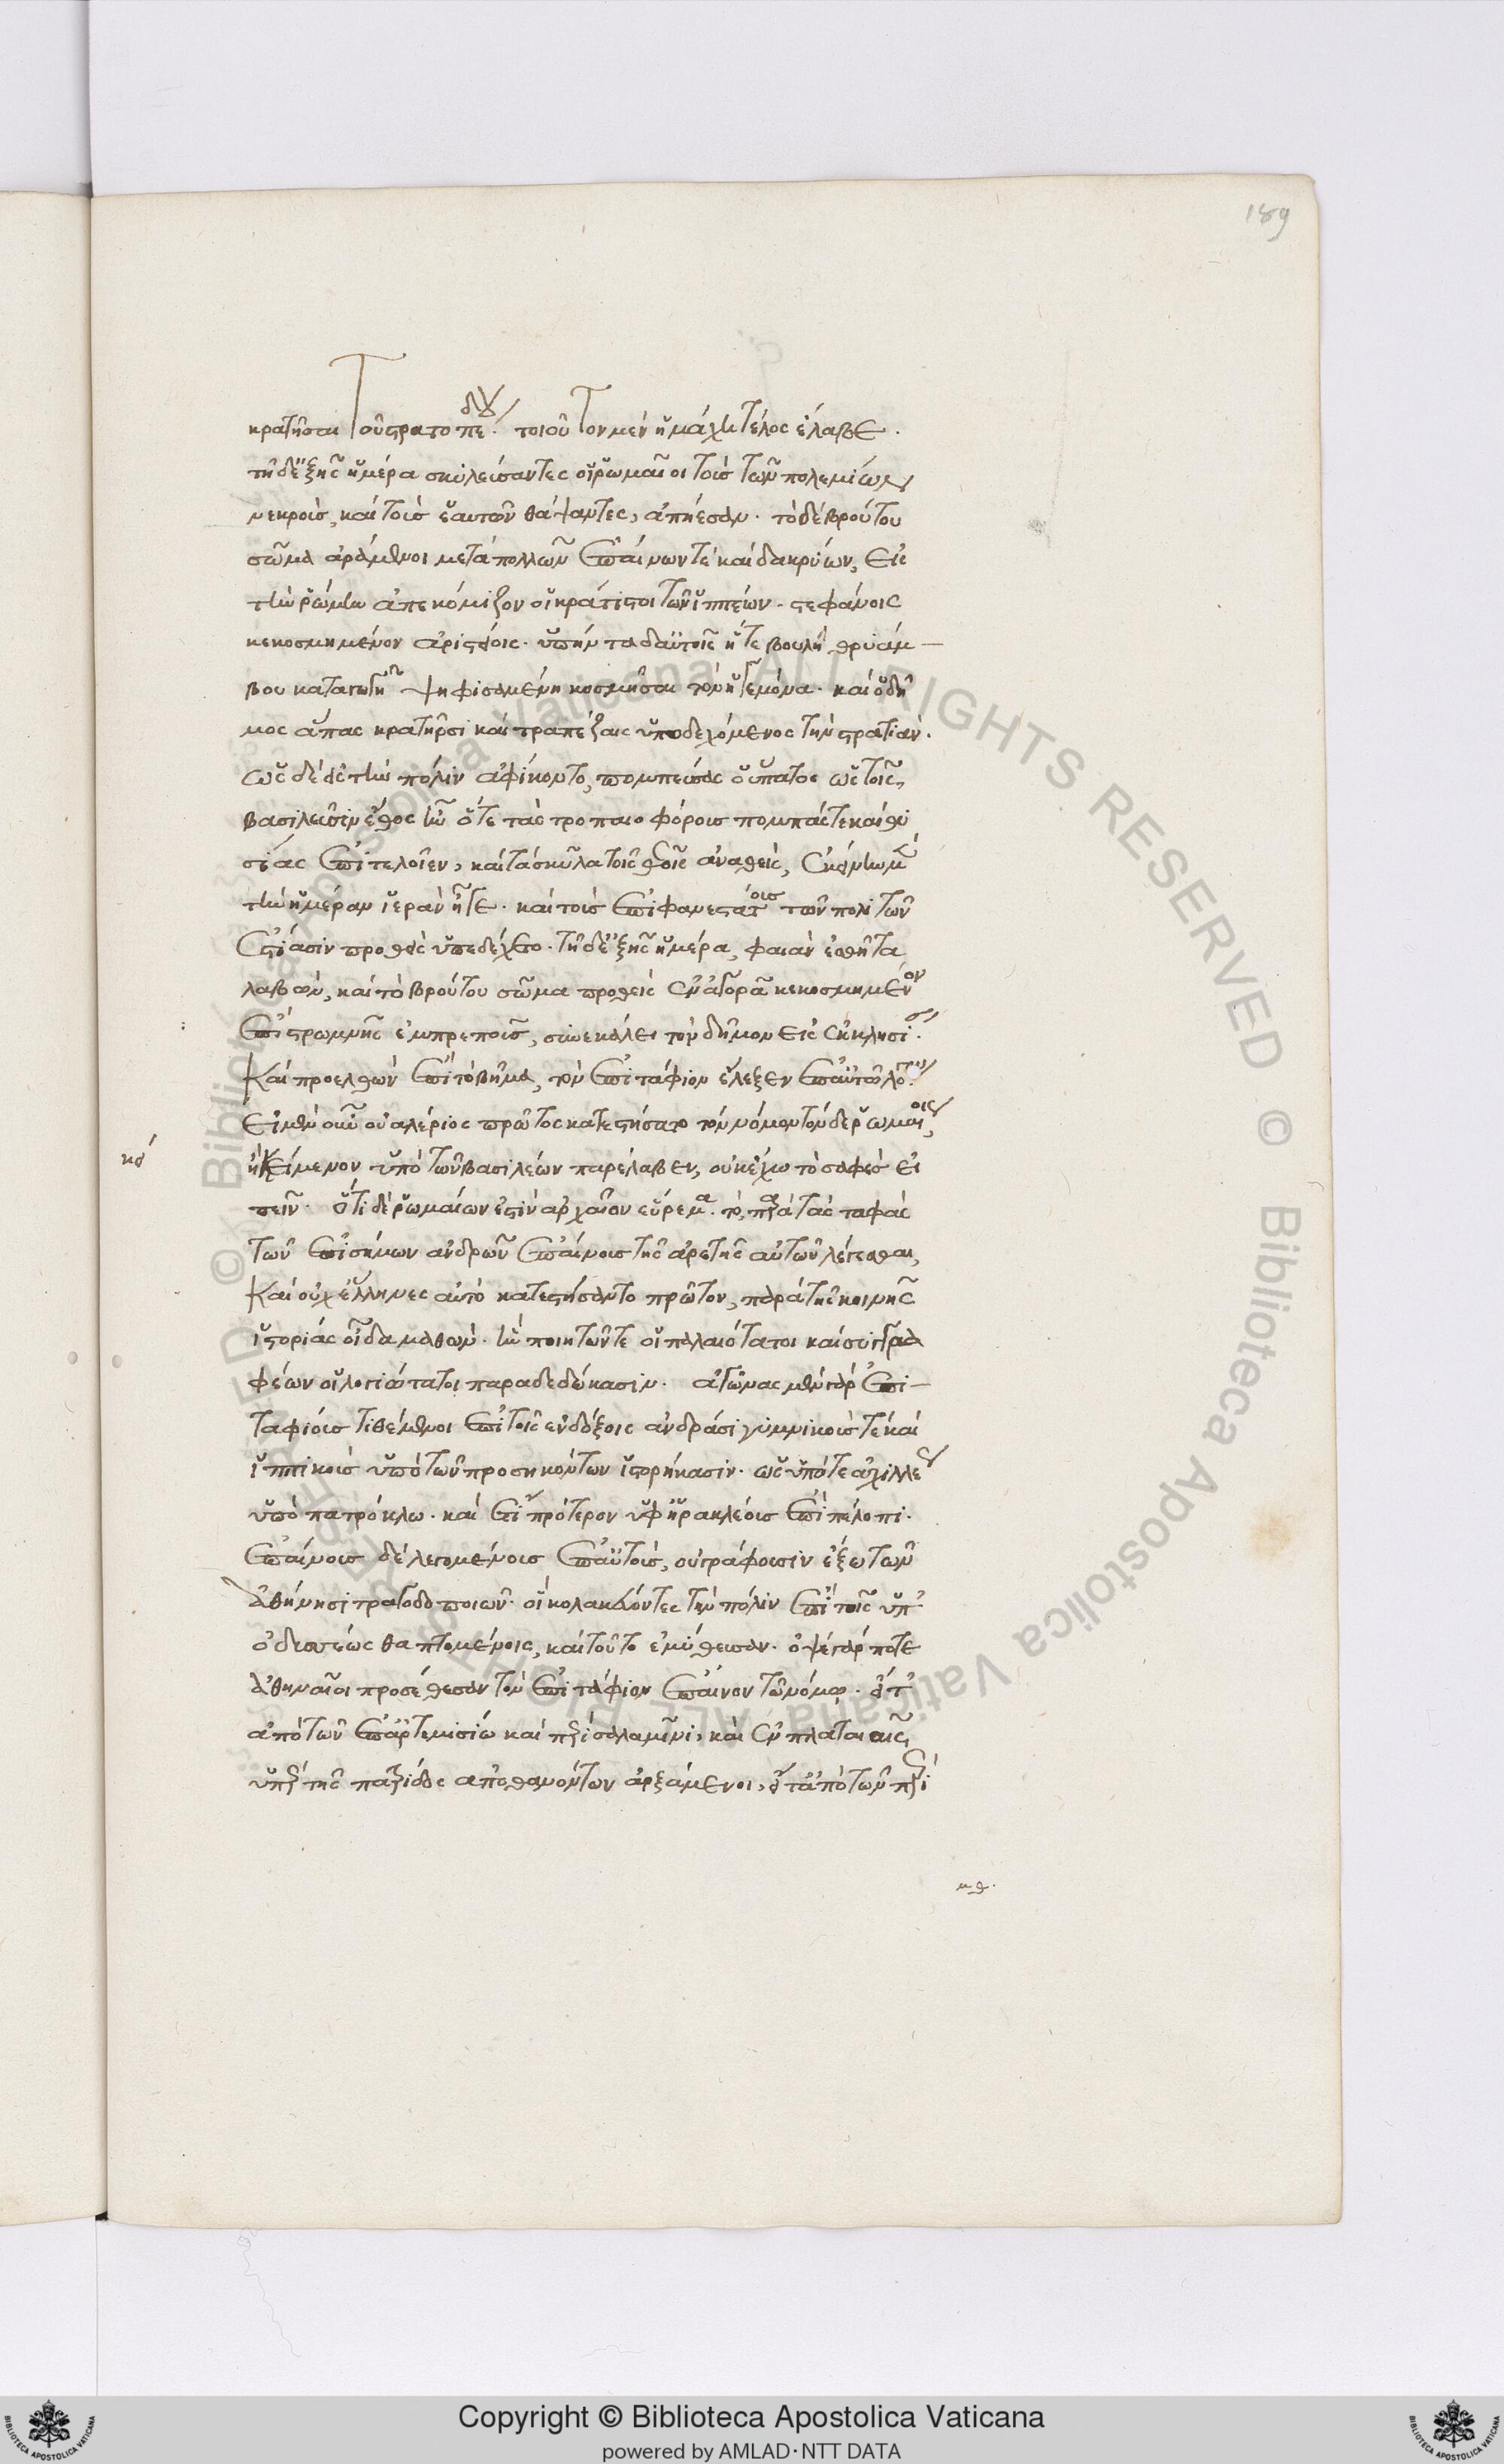 189
κρατῆσαι τοῦ στρατοπέδου. τοιοῦτον μὲν ἡ μάχη τέλος ἔλαβε.
τῇ δ' ἑξῆς ἡμέρα σκυλεύσαντες οἱ ῥωμαῖοι τοὺς τῶν πολεμίων
νεκροὺς, καὶ τοὺς ἑαυτῶν θάψαντες, ἀπῄεσαν. τὸ δὲ βρούτου
σῶμα ἀράμενοι μετὰ πολλῶν ἐπαίνων τὲ καὶ δακρύων, εἰς
τὴν ῥώμην ἀπεκόμιζον οἱ κράτιστοι τῶν ἱππέων. στεφάνοις
κεκοσμημένον ἀριστείοις. ὑπήντα δ' αὐτοῖς ἥτε βουλὴ θριάμ-
βου καταγωγῇ ψηφισαμένη κοσμῆσαι τὸν ἡγεμόνα. καὶ ὁ δῆ
μος ἅπας κρατῆρσι καὶ τραπέζαις ὑποδεχόμενος τὴν στρατιάν.
ὡς δὲ εἰς τὴν πόλιν ἀφίκοντο, πομπεύσας ὁ ὕπατος ὡς τοῖς
βασιλεῦσιν ἔθος ἦν ὅτε τὰς τροπαιοφόρους πομπάς τε καὶ θυ
σίας ἐπιτελοῖεν, καὶ τὰ σκῦλα τοῖς θεοῖς ἀναθεὶς, ἐκείνην μὲν
τὴν ἡμέραν ἱερὰν ἦγε. καὶ τοὺς ἐπιφανεστάτους τῶν πολιτῶν
ἑστιάσιν προθεὶς ὑπεδέχετο. τῇ δ' ἑξῆς ἡμέρα, φαιὰν ἐσθῆτα
λαβὼν, καὶ τὸ βρούτου σῶμα προθεὶς ἐν ἀγορᾶ κεκοσμημένον
ἐπὶ στρωμνῆς ἐμπρεποῦς, συνεκάλει τὸν δῆμον εἰς ἐκκλησίαν.
καὶ προελθὼν ἐπὶ τὸ βῆμα, τὸν ἐπιτάφιον ἔλεξεν ἐπ' αὐτῶ λόγον.
εἰ μὲν οὖν οὐαλέριος πρῶτος κατεστήσατο τὸν νόμον τόνδε ῥωμαίοις,
κδ
ἢ κείμενον ὑπὸ τῶν βασιλέων παρέλαβεν, οὐκ ἔχω τὸ σαφὲς εἰ
πεῖν. ὅτι δὲ ῥωμαίων ἐστὶν ἀρχαῖον εὕρεμα. τὸ παρὰ τὰς ταφὰς
τῶν ἐπισήμων ἀνδρῶν ἐπαίνους τῆς ἀρετῆς αὐτῶν λέγεσθαι,
καὶ οὐχ ἕλληνες αὐτὸ κατεστήσαντο πρῶτον, παρὰ τῆς κοινῆς
ἱστορίας οἶδα μαθὼν. ἣν ποιητῶν τε οἱ παλαιότατοι καὶ συγγρα
φέων οἱ λογιώτατοι παραδεδώκασιν. ἀγῶνας μὲν γὰρ ἐπι-
ταφίους τιθέμενοι ἐπὶ τοῖς ἐνδόξοις ἀνδράσι γυμνικούς τε καὶ
ἱππικοὺς ὑπὸ τῶν προσηκόντων ἱστορήκασιν. ὡς ὑπό τε ἀχιλλέως
ὑπὸ πατρόκλω. καὶ ἔτι πρότερον ὑφ' ἡρακλέους ἐπὶ πέλοπι.
ἐπαίνους δὲ λεγομένους ἐπ' αὐτοῖς, οὐ γράφουσιν ἔξω τῶν
ἀθήνησι τραγωδοποιῶν. οἳ κολακεύοντες τὴν πόλιν ἐπὶ τοῖς ὑπ'
ὀδυσσέως θαπτομένοις, καὶ τοῦτο ἐμύθευσαν. ὀψὲ γάρ ποτε
ἀθηναῖοι προσέθεσαν τὸν ἐπιτάφιον ἔπαινον τῶ νόμω. εἴτ'
ἀπὸ τῶν ἐπ' ἀρτεμισίω καὶ περὶ σαλαμῖνι, καὶ ἐν πλαταιαῖς
ὑπὲρ τῆς πατρίδος ἀποθανόντων ἀρξάμενοι, εἴτ' ἀπὸ τῶν περὶ
Copyright © Biblioteca Apostolica Vaticana
powered by AMLAD·NTT DATA